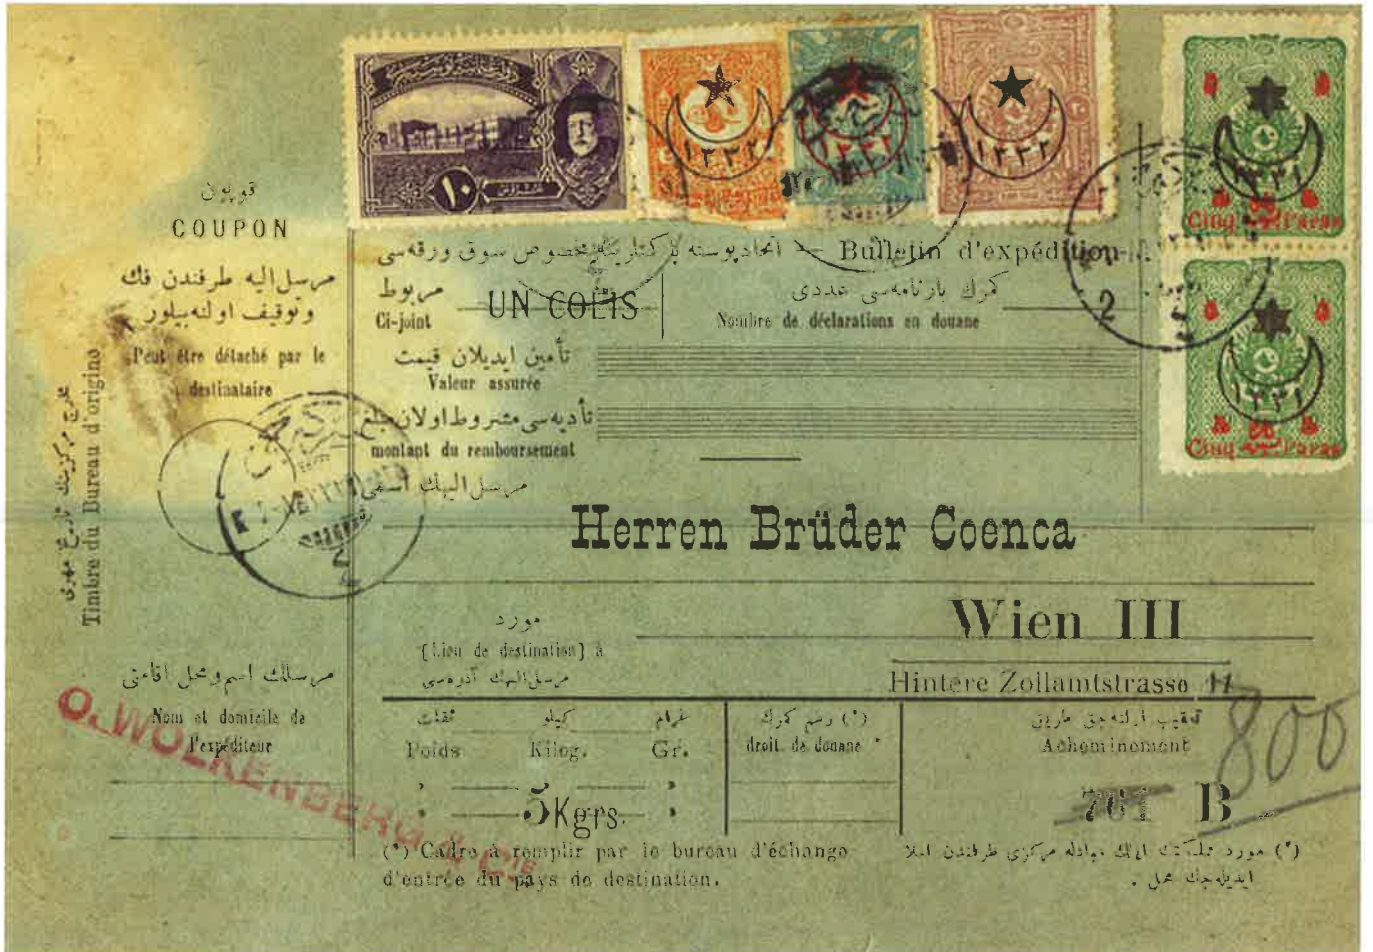 ١٠
١٣٣٢
١٣٣١
١٣٣٢
١٣٣١
Cinq Paras
١٣٣١
Cinq Paras
قوپون
COUPON
مرسل اليه طرفندن فك
وتوقيف اولنه بيلور
Peut être détaché par le
destinataire
Timbre du Bureau d'origine
مرسلك اسم و محل اقامتى
Nom et domicile de
l'expéditeur
O. WOLKENBERG & Cie
سوق ورقه سى — Bulletin d'expédition
مربوط
Ci-joint
UN COLIS
كمرك بارنامه سى عددى
Nombre de déclarations en douane
تأمين ايديلان قيمت
Valeur assurée
تأديه سى مشروط اولان مبلغ
montant du remboursement
مرسل اليهك اسمى
2
2
Herren Brüder Coenca
Wien III
مورد
(Lieu de destination) à
Hintere Zollamtstrasse 11
ثقلت كيلو غرام
Poids Kilog. Gr.
(*) رسم كمرك
droit de douane *
Acheminement
5 Kgrs.
701 B
800
(*) Cadre à remplir par le bureau d'échange
d'entrée du pays de destination.
ايديله جك محل .